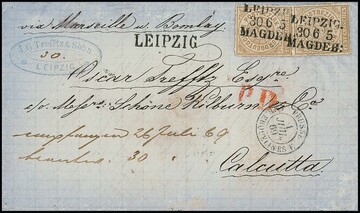 via Marseille u. Bombay.
LEIPZIG
30 6 5
MAGDEB:
LEIPZIG
30 6 5
MAGDEB:
LEIPZIG
LEIPZIG
30.
Oscar Trefftz Esqre
c/o Messrs Schöne Kilburn & Co
P.D.
empfangen 26 Juli 69
30
Calcutta